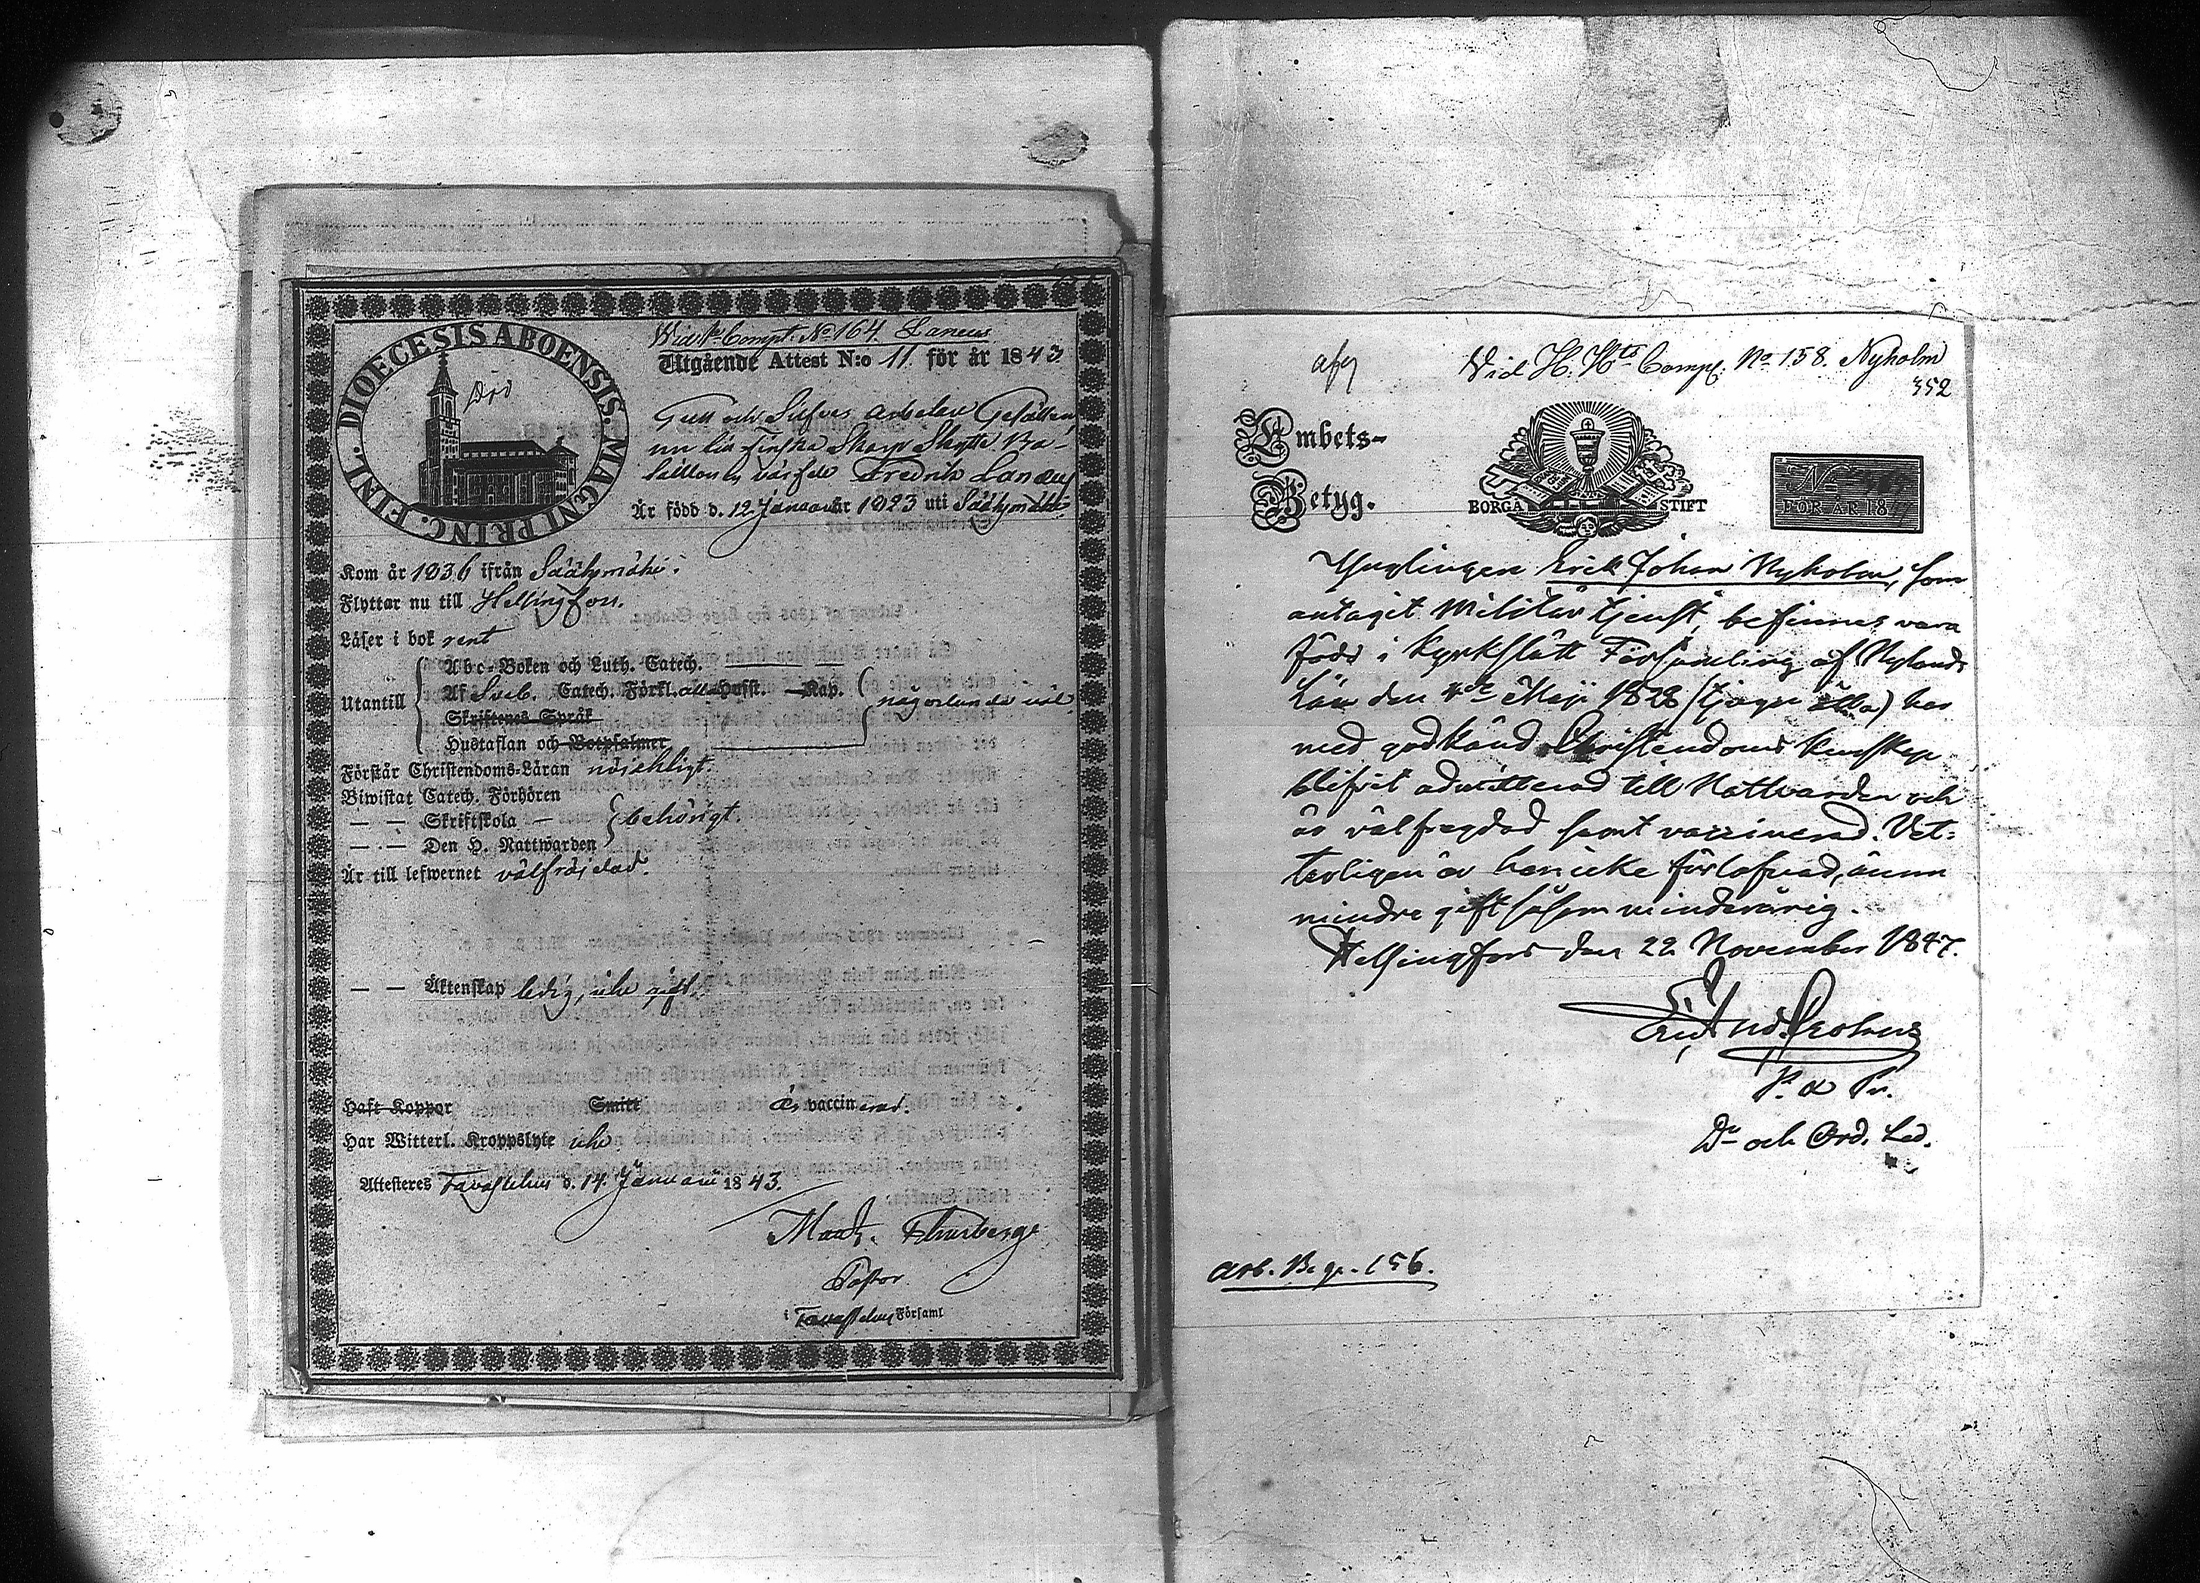 Wid 1te Compt. No 164. Laneus
Utgående Attest N:o 11 för år 1843
DIOECESIS ABOENSIS. MAGNI PRINC. FINL.
Död
Gull och Silfver arbetare Gesällen,
nu Finska Skarp Skytte Ba-
taillonen Fredrik Laneus
Är född d. 12 Januari år 1823 uti Sääksmäki
Kom år 1836 ifrån Sääksmäki.
Flyttar nu till Helsingfors.
Läser i bok rent
Utantill
Abc-Boken och Luth. Catech. —
Af Sveb. Catech. Förkl. all Husst. — Kap.
Skriftenes Språk
Hustaflan och Botpsalmer
någorlunda väl
Förstår Christendoms-Läran nöjaktigt.
Biwistat Catech. Förhören
— — Skriftskola —
— — Den H. Nattwarden
behörigt.
Är till lefwernet välfräjdad.
— — Äktenskap ledig, icke gift.
Haft Koppor Smitt är vaccinerad.
Har Witterl. Kroppslyte icke
Attesteres Tavastehus d. 14 Januarii 1843.
Pastor
i Tavastehus Församl
afg
Vid H. Kts Comp. No 158. Nyholm
352
Embets-
Betyg.
BORGÅ STIFT
No
FÖR ÅR 18
Ynglingen Erik Johan Nyholm, som
antagit Militär tjenst, befinnes vara
född i Kyrkslätt Församling af Nylands
Län den 4de Maji 1828 han
med godkänd Christendoms kunskap
blifvit admitterad till Nattvarden och
är välfregdad samt vaccinerad. Vet-
terligen är han icke förlofvad, ännu
mindre gift såsom minderårig.
Helsingfors den 22 November 1847.
P. & Pr.
och Ord. Led.
Arb. B. pg. 156.